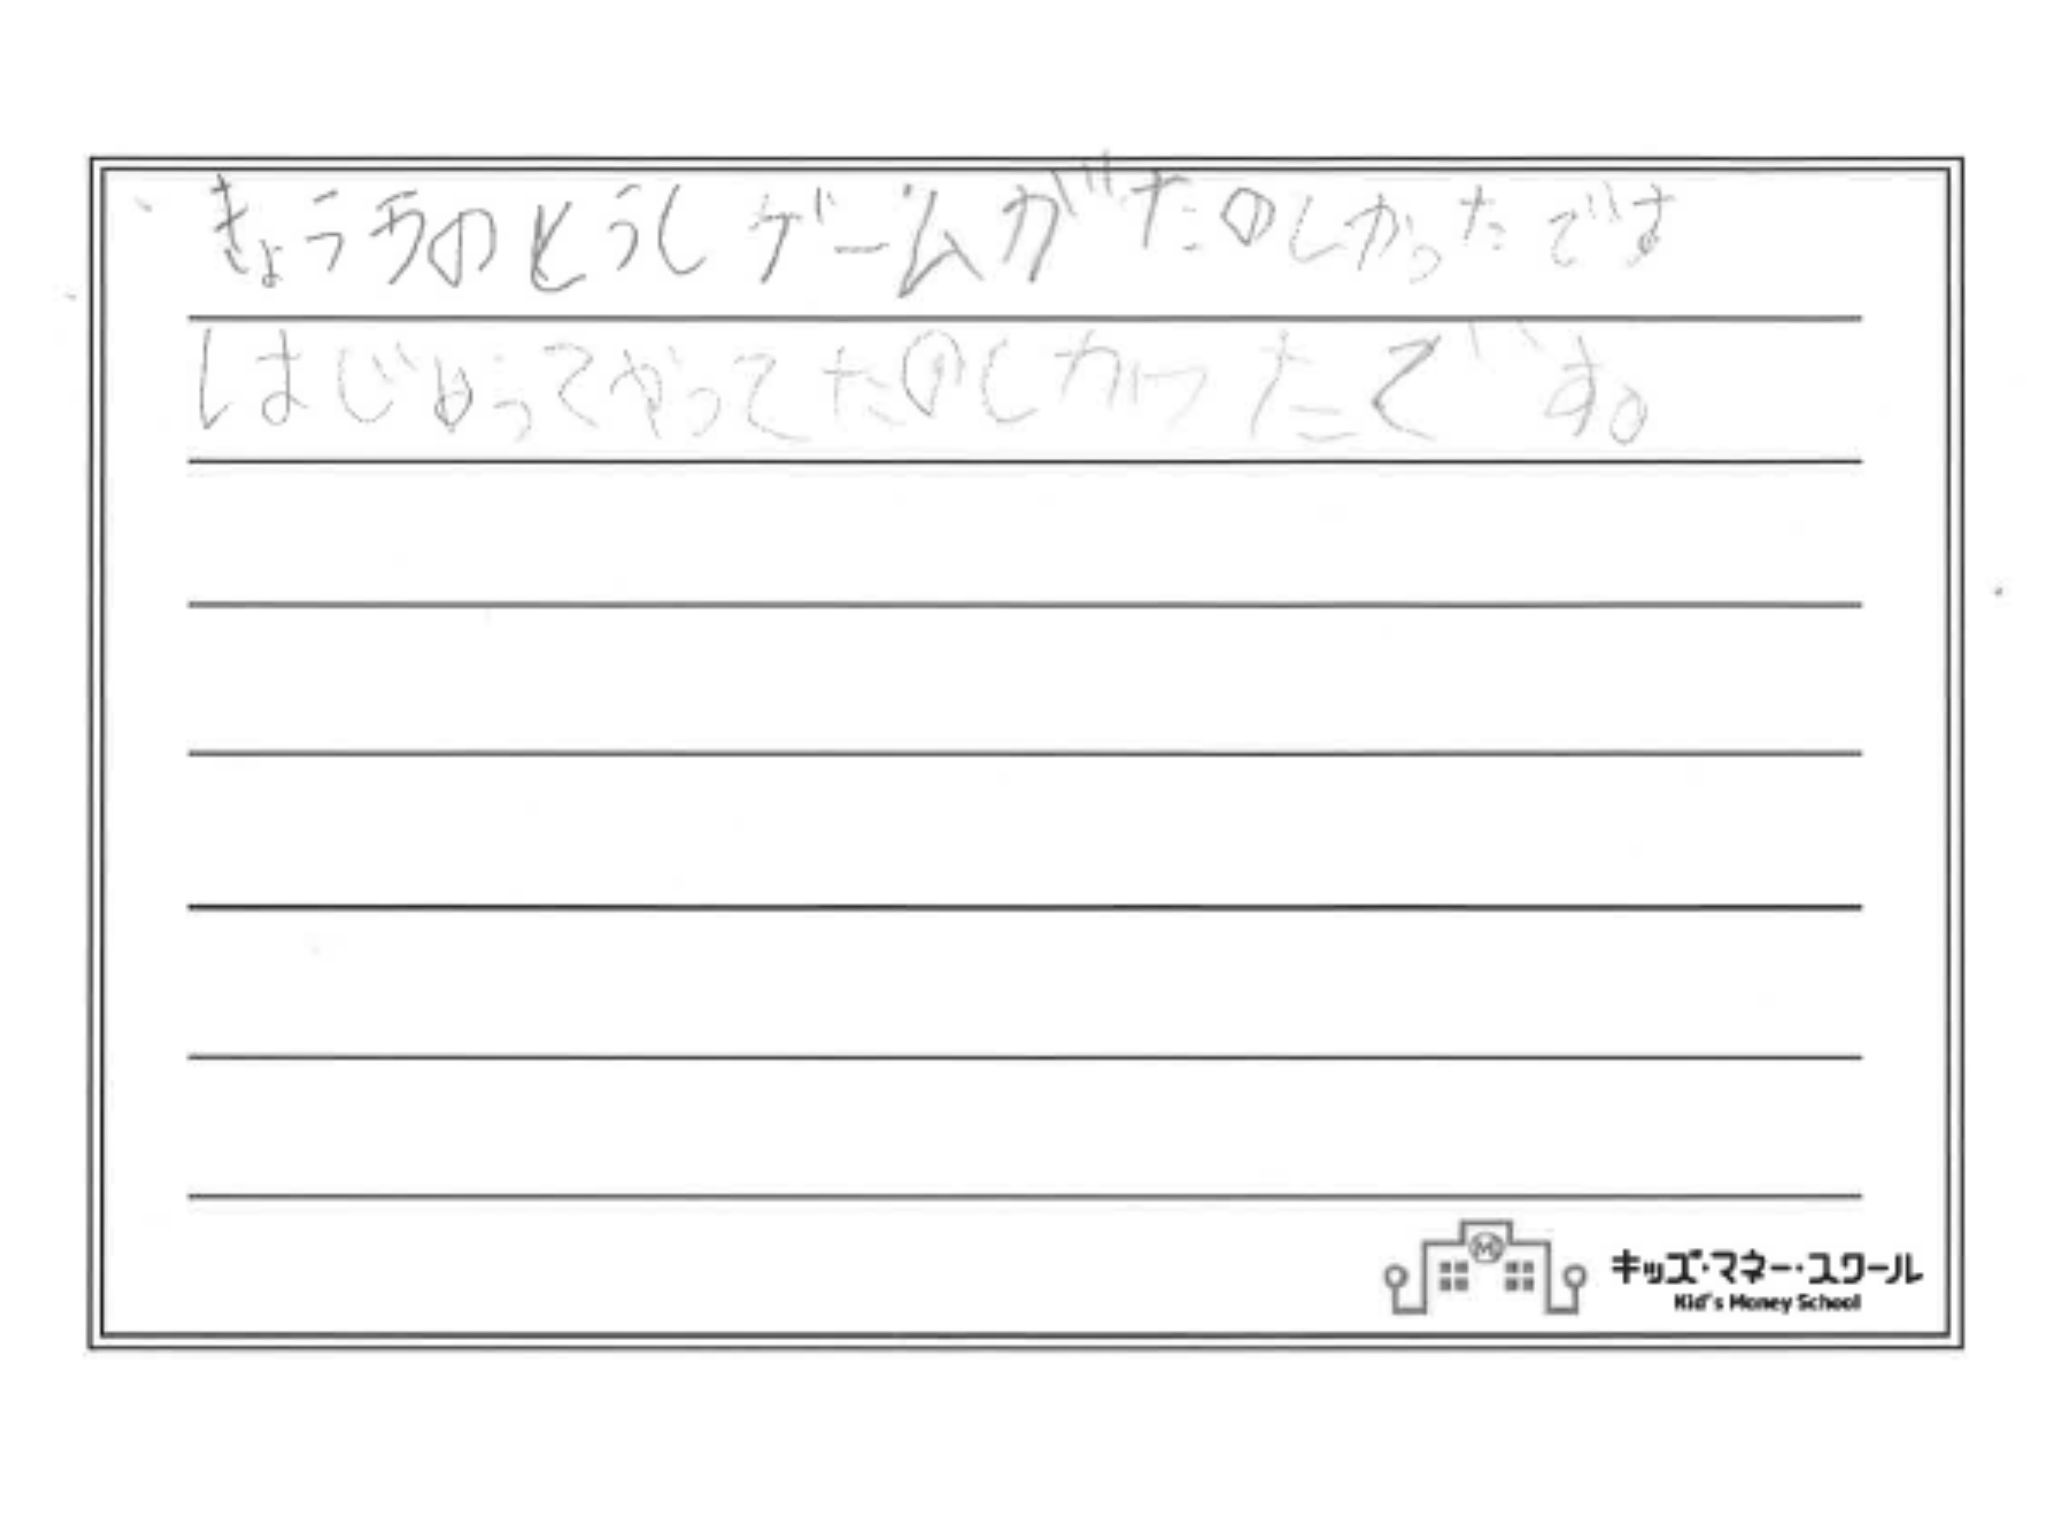 きょううのとうしゲームがたのしかったです
はじめってやってたのしかつたです。
キッズ・マネー・スクール
Kid's Money School